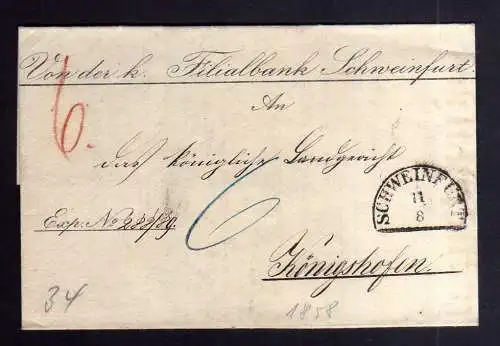 Von der k. Filialbank Schweinfurt.
6.
An
das königliche Landgericht
SCHWEINFURT
11
8
Exp. No 288/89.
6
Königshofen.
34
1858